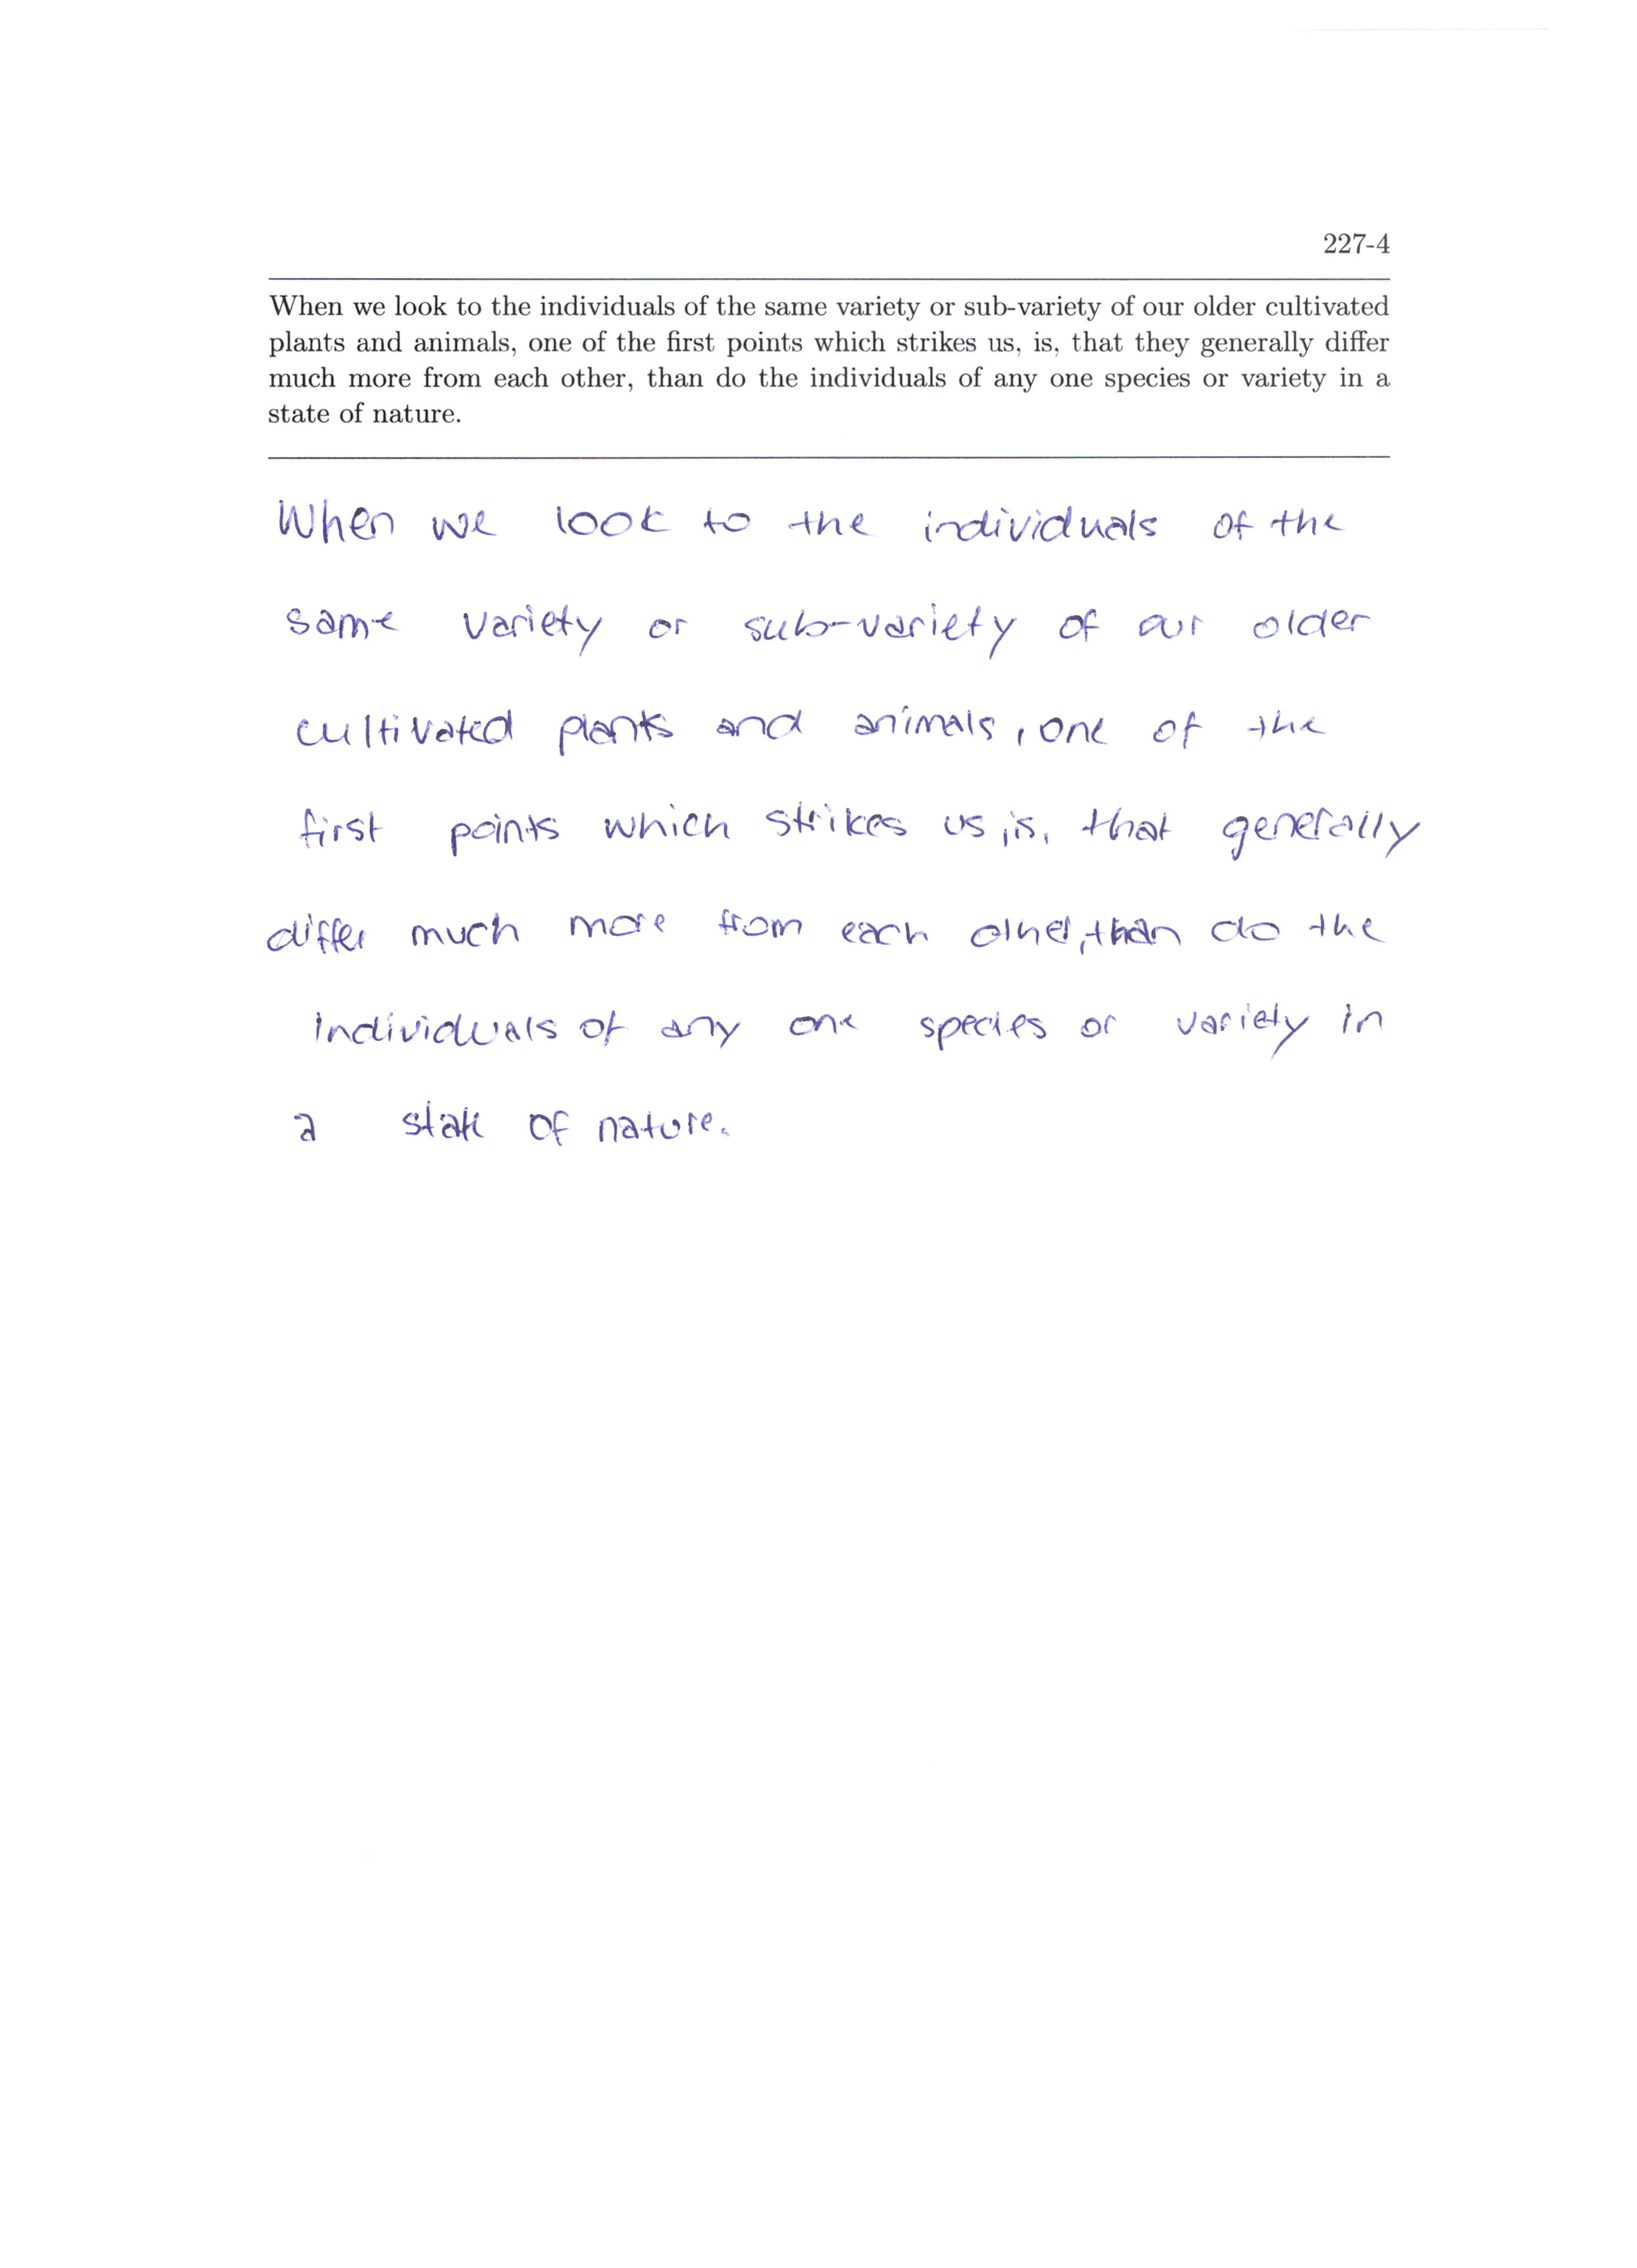 227-4
When we look to the individuals of the same variety or sub-variety of our older cultivated
plants and animals, one of the first points which strikes us, is, that they generally differ
much more from each other, than do the individuals of any one species or variety in a
state of nature.
When we look to the individuals of the
same variety or sub-variety of our older
cultivated plants and animals, one of the
first points which strikes us, is, that generally
differ much more from each other, than do the
individuals of any one species or variety in
a state of nature.